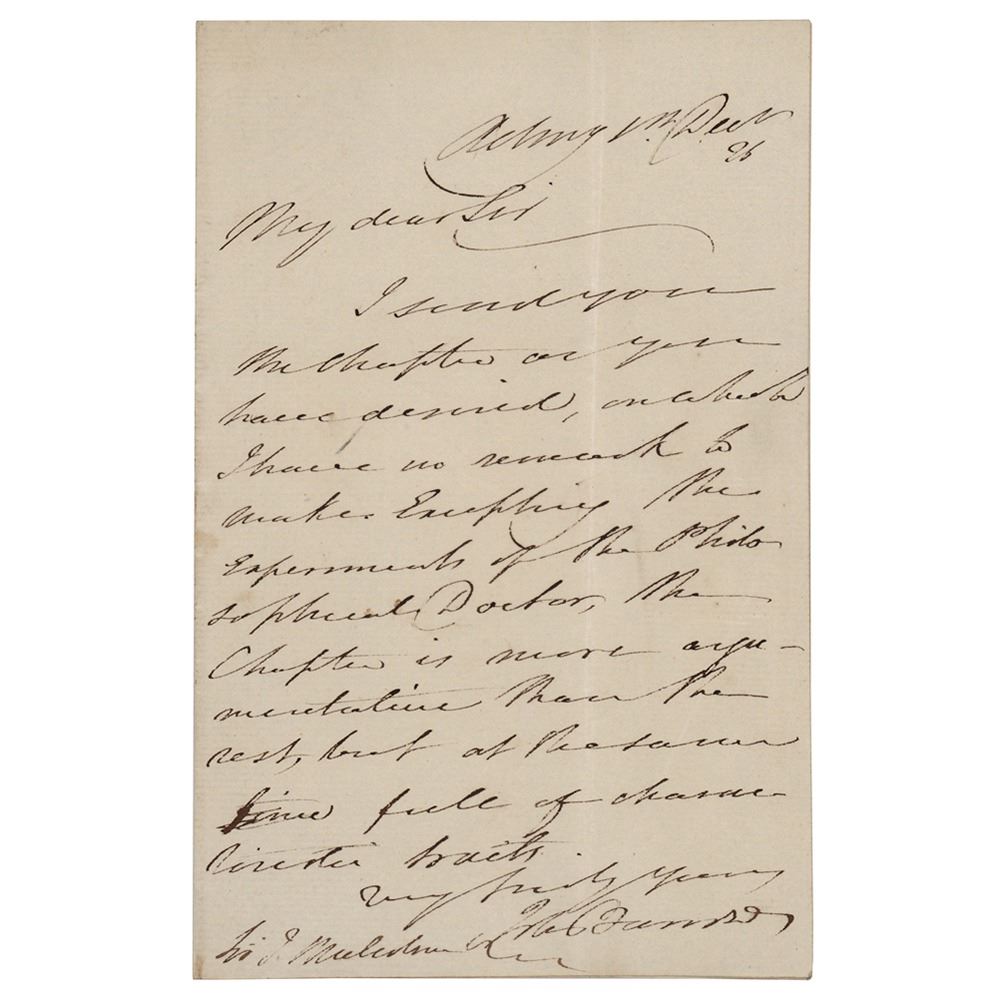 My dear Sir
I send you
the Chapter as you
have desired, on which
I have no remark to
make. Excepting the
Experiments of the Philo-
sophical Doctor, the
Chapter is more argu-
mentative than the
rest, but at the same
time full of charac-
teristic traits.
very truly yours
Sir J. Malcolm